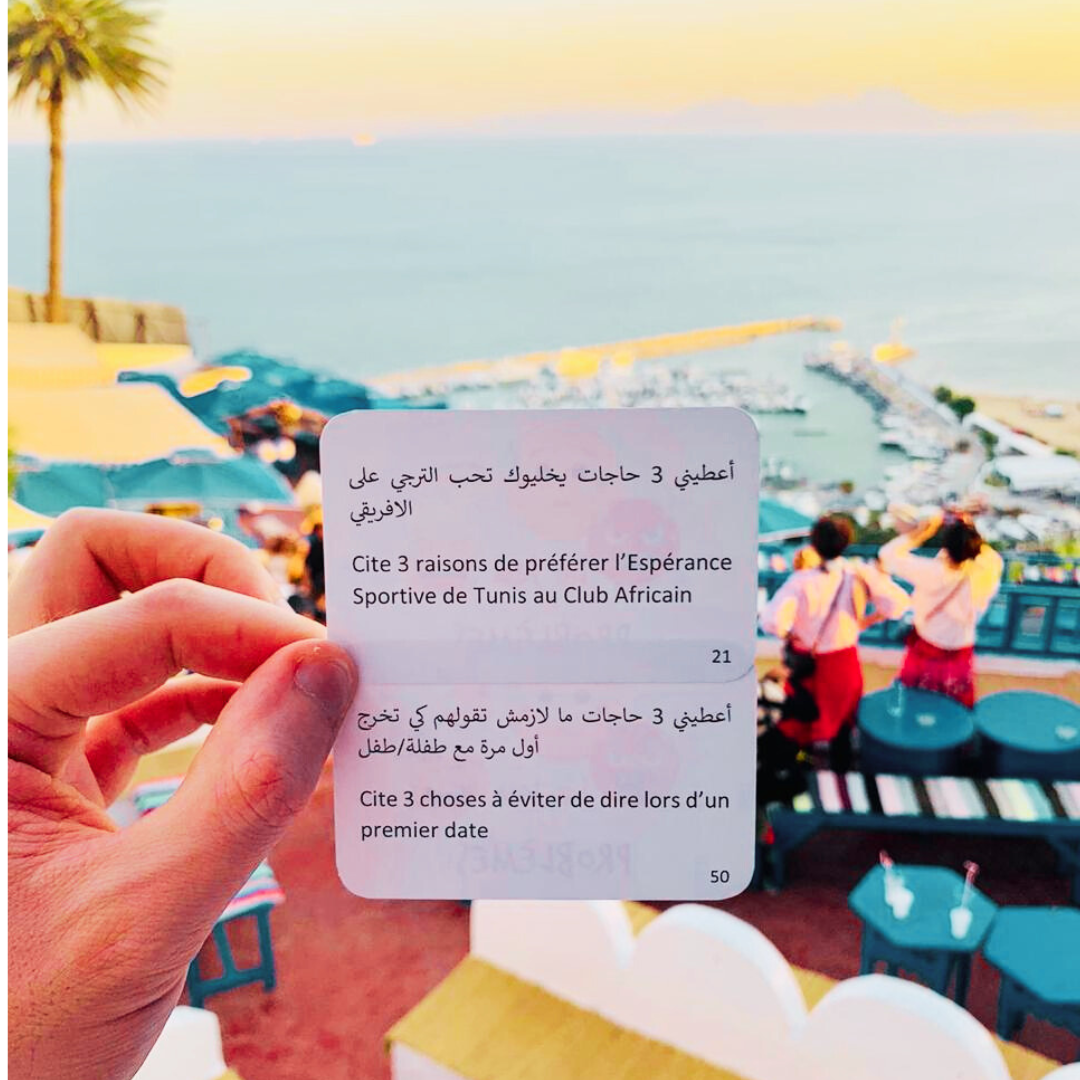 أعطيني 3 حاجات يخليوك تحب الترجي على
الافريقي
Cite 3 raisons de préférer l’Espérance
Sportive de Tunis au Club Africain
21
أعطيني 3 حاجات ما لازمش تقولهم كي تخرج
أول مرة مع طفلة/طفل
Cite 3 choses à éviter de dire lors d’un
premier date
50